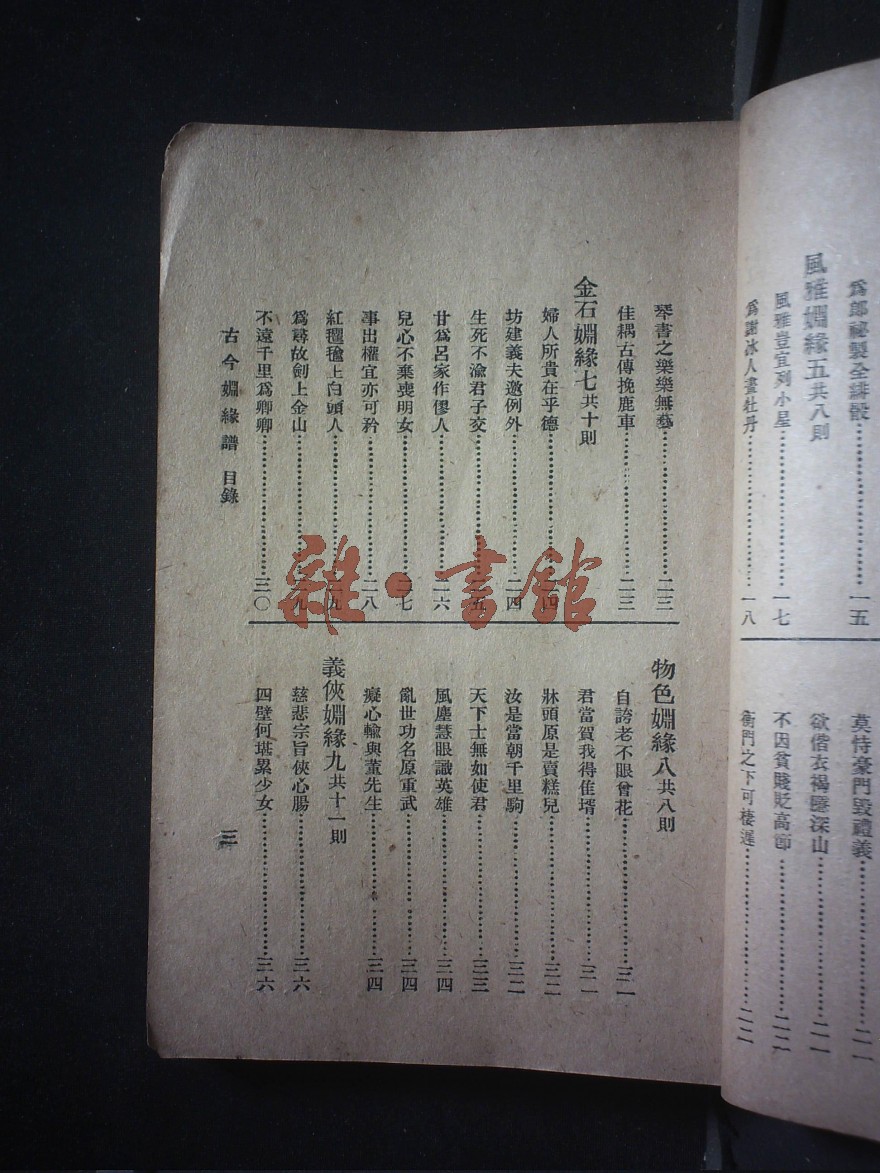 爲郎祕製全緋……………一五
風雅婣緣五共八則
風雅豈宜列小星……………一七
爲謝冰人畫牡丹……………一八
莫恃豪門毀禮義……………二一
欲偕衣褐隱深山……………二一
不因貧賤貶高節……………二二
衡門之下可棲遲……………二二
琴書之樂樂無藝……………二三
佳耦古傳挽鹿車……………二三
金石婣緣七共十則
婦人所貴在乎德……………二四
坊建義夫邀例外……………二四
生死不渝君子交……………二五
甘爲呂家作僇人……………二六
兒心不棄喪明女……………二七
事出權宜亦可矜……………二八
紅氍毹上白頭人……………二九
爲尋故劍上金山……………二九
不遠千里爲卿卿……………三〇
物色婣緣八共八則
自誇老不眼曾花……………三一
君當賀我得隹壻……………三一
牀頭原是賣糕兒……………三二
汝是當朝千里駒……………三二
天下士無如使君……………三三
風塵慧眼識英雄……………三四
亂世功名原重武……………三四
癡心輸與董先生……………三四
義俠婣緣九共十一則
慈悲宗旨俠心腸……………三六
四壁何堪累少女……………三六
古今婣緣譜 目錄
三
雜·書館